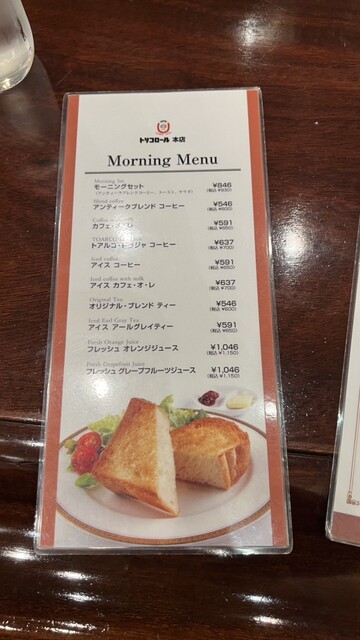 トリコロール 本店
Morning Menu
Morning Set
モーニングセット ¥846
(アンティークブレンドコーヒー、トースト、サラダ) (税込 ¥930)
Blend coffee
アンティークブレンド コーヒー ¥546
(税込 ¥600)
カフェ・オ・レ ¥591
(税込 ¥650)
トアルコ・トラジャ コーヒー ¥637
(税込 ¥700)
Iced coffee
アイス コーヒー ¥591
(税込 ¥650)
Iced coffee with milk
アイス カフェ・オ・レ ¥637
(税込 ¥700)
Original Tea
オリジナル・ブレンド ティー ¥546
(税込 ¥600)
Iced Earl Gray Tea
アイス アールグレイティー ¥591
(税込 ¥650)
Fresh Orange Juice
フレッシュ オレンジジュース ¥1,046
(税込 ¥1,150)
Fresh Grapefruit Juice
フレッシュ グレープフルーツジュース ¥1,046
(税込 ¥1,150)